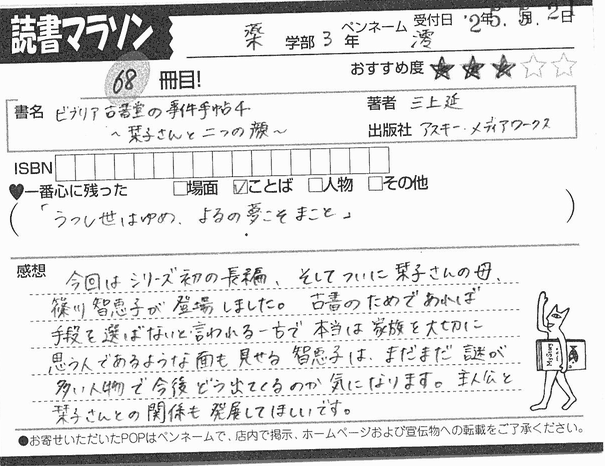 読書マラソン
薬 学部 3 年 ペンネーム 澪 受付日 '25.5.21日
68 冊目!
おすすめ度 ★★★☆☆
書名 ビブリア古書堂の事件手帖4
~栞子さんと二つの顔~
著者 三上延
出版社 アスキー・メディアワークス
ISBN
♥一番心に残った □場面 ☑ことば □人物 □その他
(「うつし世はゆめ、よるの夢こそまこと」)
感想
今回はシリーズ初の長編、そしてついに栞子さんの母、
篠川智恵子が登場しました。古書のためであれば
手段を選ばないと言われる一方で本当は家族を大切に
思う人であるような面も見せる智恵子は、まだまだ謎が
多い人物で今後どう出てくるのか気になります。主人公と
栞子さんとの関係も発展してほしいです。
●お寄せいただいたPOPはペンネームで、店内で掲示、ホームページおよび宣伝物への転載をご了承ください。